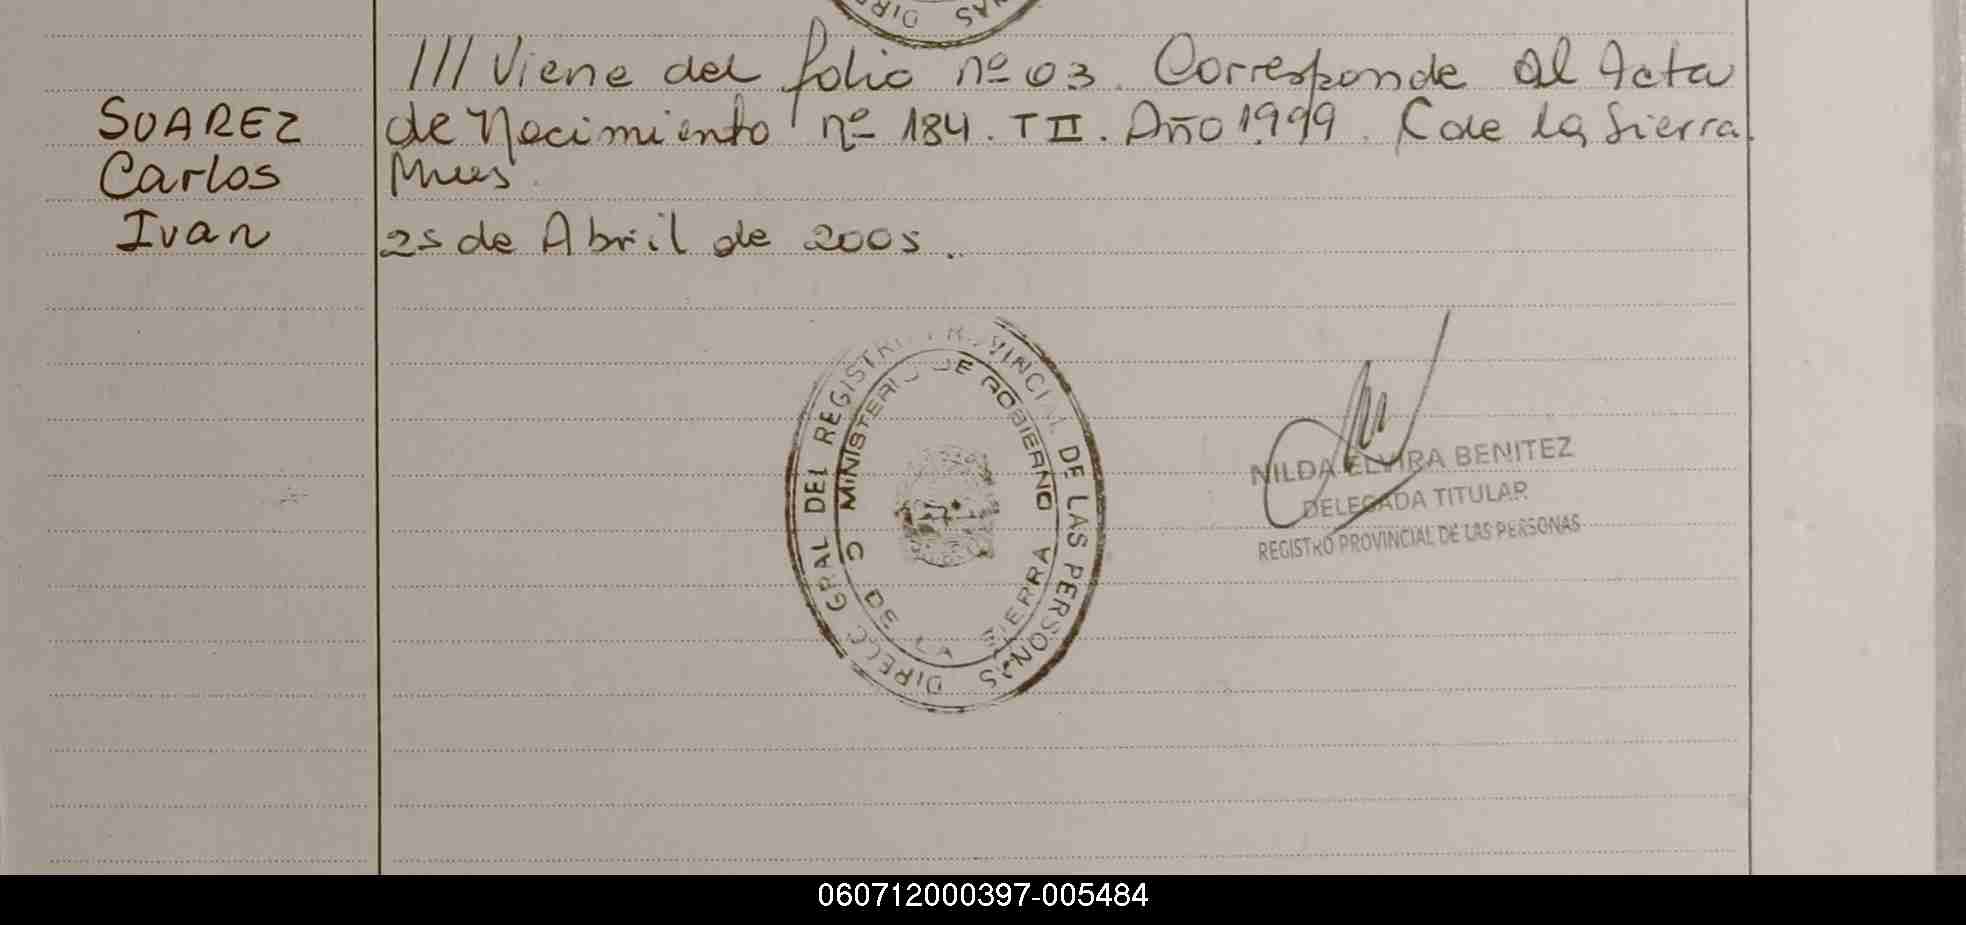 III Viene del folio nº 03. Corresponde al Acta
SUAREZ de Nacimiento nº 184. T II. Año 1999. C de la Sierra.
Carlos
Ivan 25 de Abril de 2005.
DIRECC GRAL DEL REGISTRO PROVINCIAL DE LAS PERSONAS
MINISTERIO DE GOBIERNO
C DE LA SIERRA
NILDA ELVIRA BENITEZ
DELEGADA TITULAR
REGISTRO PROVINCIAL DE LAS PERSONAS
060712000397-005484